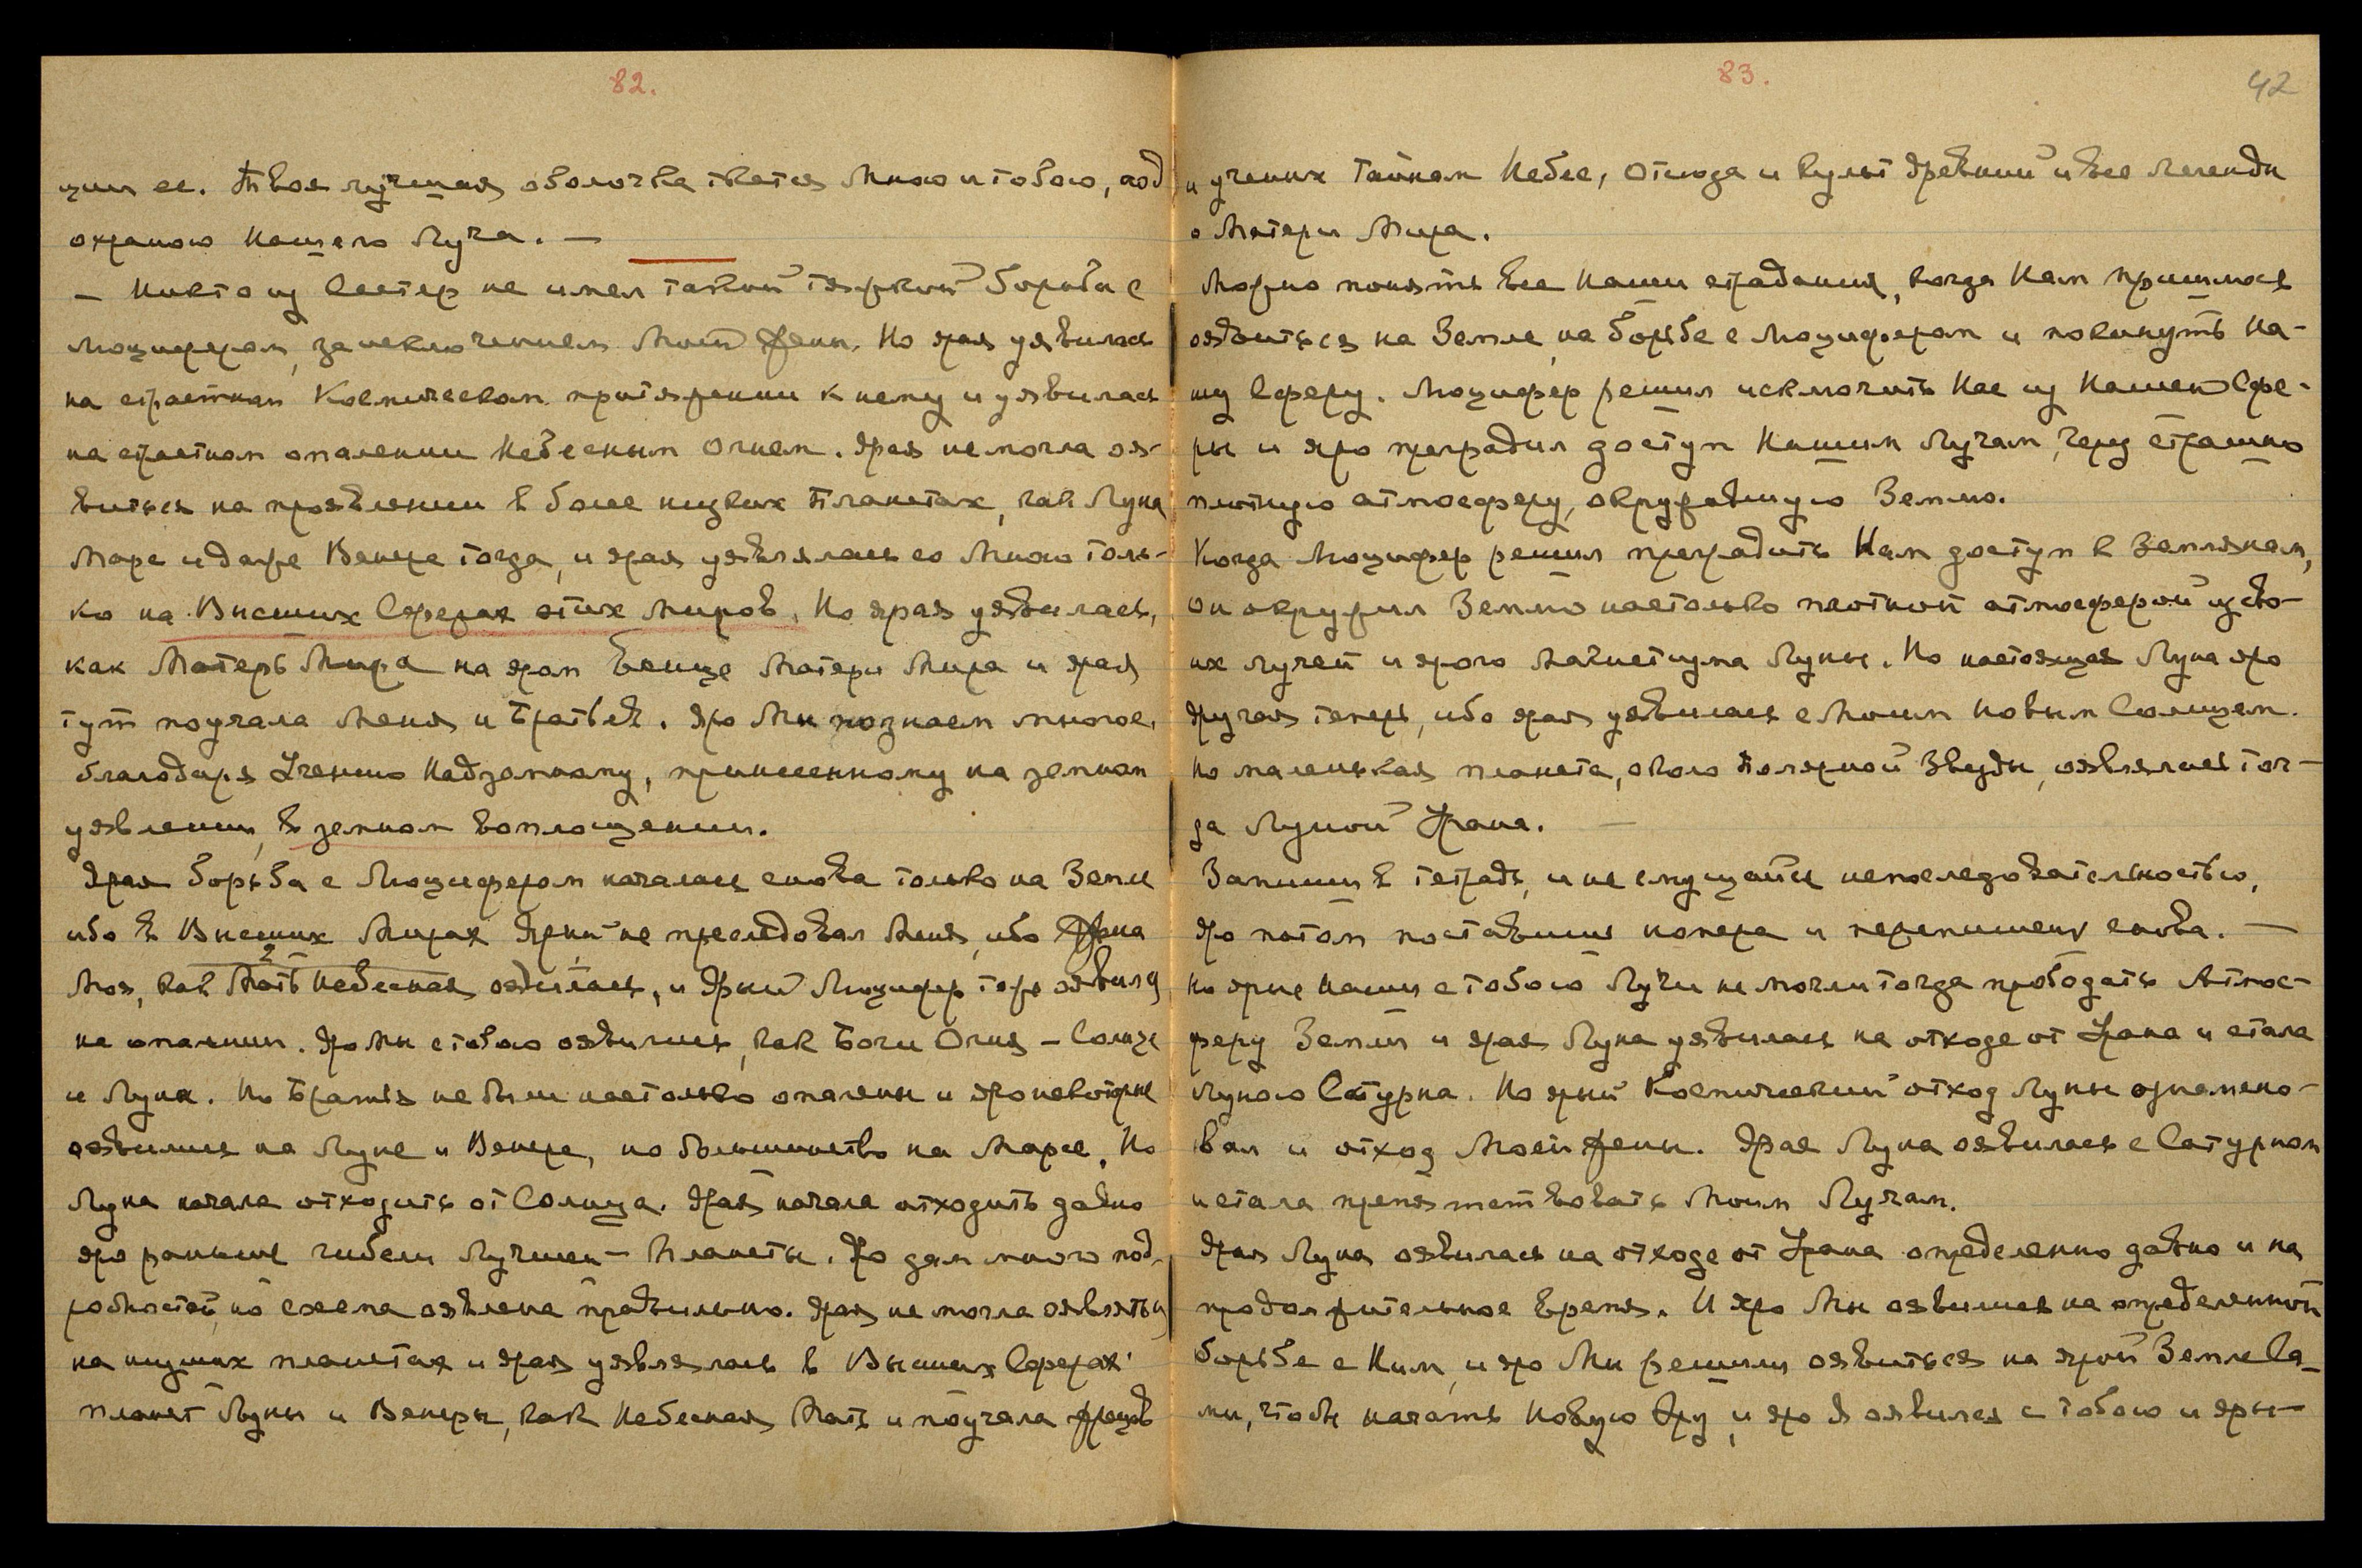 82.
ции ее. Твоя лучшая оболочка ткется Мною и тобою, под
охраною Нашего Луча. —
— Никто из Сестер не имел такой тяжкой борьбы с
Люцифером, за исключением Моей Жены. Но ярая уявилась
на страстном Космическом притяжении к нему и уявилась
на страстном опалении Небесным Огнем. Ярая не могла оя-
виться на проявлении в более низких Планетах, как Луна
Марс и даже Венера тогда, и ярая уявлялась со Мною толь-
ко на Высших Сферах этих Миров. Но ярая уявилась,
как Матерь Мира на яром Венце Матери Мира и ярая
тут поучала Меня и Братьев. Яро Мы познаем многое,
благодаря Учению Надземному, принесенному на земном
уявлении, в земном воплощении.
Ярая борьба с Люцифером началась снова только на Земле
ибо в Высших Мирах Ярый не преследовал Меня, ибо Жена
Моя, как Мать Небесная оявилась, и Ярый Люцифер тоже оявился
на опалении. Яро Мы с тобою оявились, как Боги Огня — Солнце
и Луна. Но Братья не были настолько опалены и яро некоторые
оявились на Луне и Венере, но большинство на Марсе. Но
Луна начала отходить от Солнца. Ярая начала отходить давно
яро раньше гибели Лучшей — Планеты. Яро дам много под-
робностей, но схема оявлена правильно. Ярая не могла оявляться
на низших планетах и ярая уявлялась в Высших Сферах
планет Луны и Венеры, как Небесная Мать и поучала жрецов
83.
42
и ученых Тайнам Небес, отсюда и культ древний и все Легенды
о Матери Мира.
Можно понять все Наши страдания, когда Нам пришлось
оявиться на Земле, на борьбе с Люцифером и покинуть На-
шу Сферу. Люцифер решил исключить Нас из Нашей Сфе-
ры и яро преградил доступ Нашим Лучам, через страшно
плотную атмосферу, окружавшую Землю.
Когда Люцифер решил преградить Нам доступ к Землянам,
он окружил Землю настолько плотной атмосферой из сво-
их лучей и ярого Магнетизма Луны. Но настоящая Луна яро
другая теперь, ибо ярая уявилась с Моим Новым Солнцем.
Но маленькая планета, около Полярной Звезды, оявлялась тог-
да Луной Урана. —
Запиши в тетрадь, и не смущайся непоследовательностью,
яро потом поставишь номера и перепишешь снова. —
Но ярые Наши с тобою Лучи не могли тогда прободать Атмос-
феру Земли и ярая Луна уявилась на отходе от Урана и стала
Луною Сатурна. Но ярый Космический отход Луны ознамено-
вал и отход Моей Жены. Ярая Луна оявилась с Сатурном
и стала препятствовать Моим Лучам.
Ярая Луна оявилась на отходе от Урана определенно давно и на
продолжительное время. И яро Мы оявились на определенной
борьбе с Ним, и яро Мы решили оявиться на ярой Земле Са-
ми, чтобы начать Новую Эру, и яро Я оявился с тобою и яры-